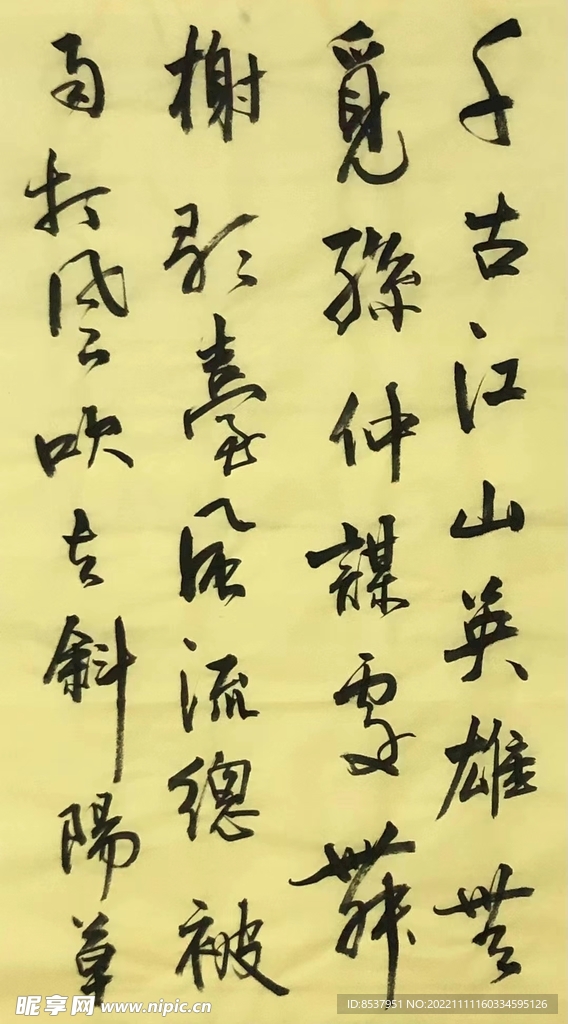 千古江山英雄無
覓孫仲謀處舞
榭歌臺風流總被
雨打風吹去斜陽草
昵享网 www.nipic.cn
ID:8537951 NO:20221111160334595126